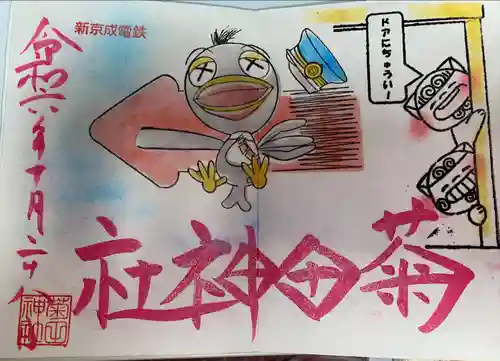 新京成電鉄
ドアにちゅういー
菊田神社
令和六年十月二十八日
菊田神社